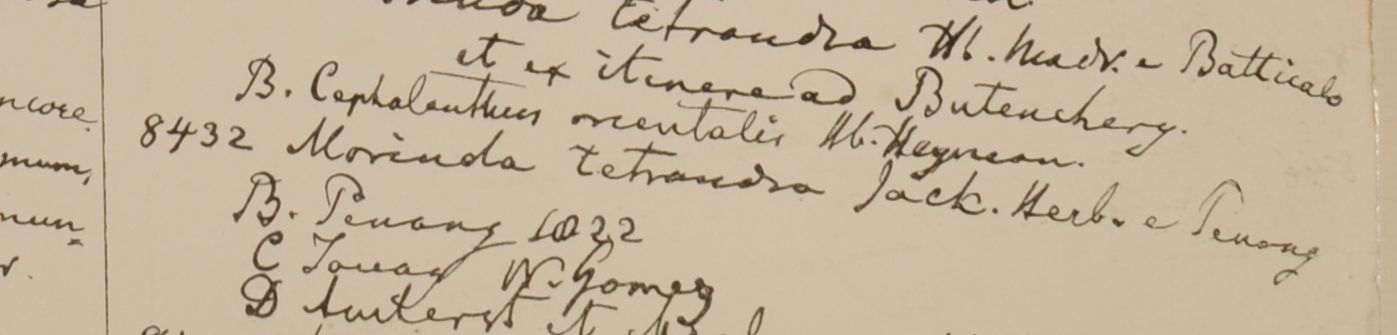 tetrandra Hb. Madr. e Batticalo
et ex itinere ad Butenchery.
B. Cephalanthus orientalis Hb. Heynean.
8432 Morinda tetrandra Jack. Herb. e Penang
B. Penang 1822
C Tavay W. Gomez
D Amherst
ncore.
mum,